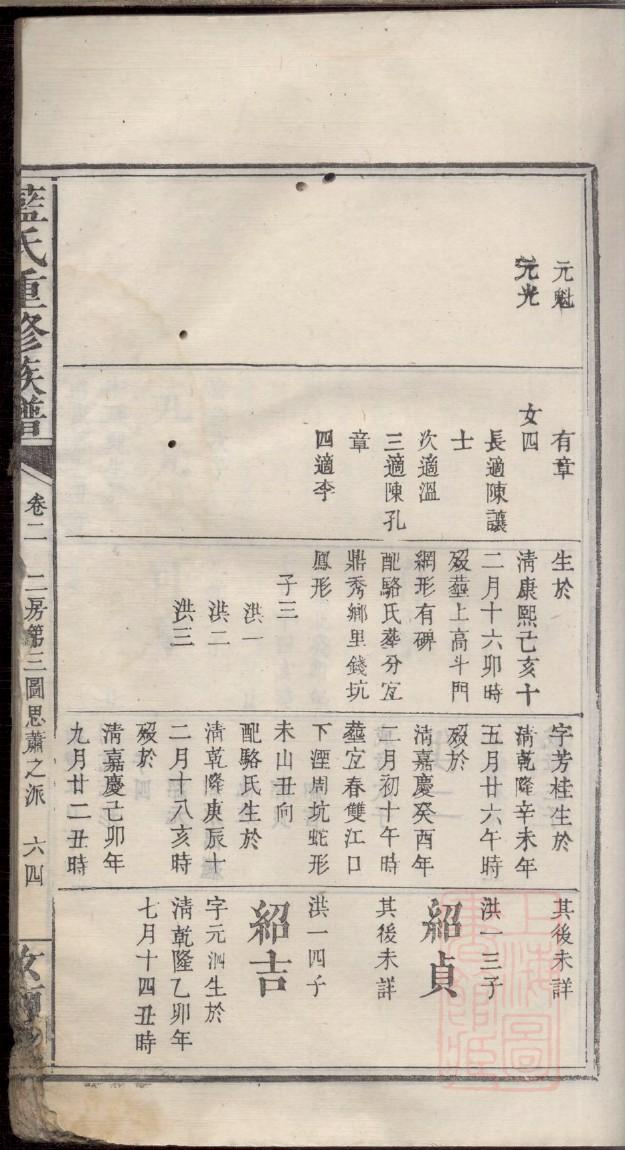 元魁
元光
有章
女四
長適陳讓
士
次適溫
三適陳孔
章
四適李
生於
清康熙己亥十
二月十六卯時
歿塟上高斗門
網形有碑
配駱氏塟分宜
鼎秀鄉里錢坑
鳳形
子三
洪一
洪二
洪三
字芳桂生於
清乾隆辛未年
五月廿六午時
歿於
清嘉慶癸酉年
二月初十午時
塟宜春雙江口
下湮周坑蛇形
未山丑向
配駱氏生於
清乾隆庚辰十
二月十八亥時
歿於
清嘉慶己卯年
九月廿二丑時
其後未詳
洪一三子
紹貞
其後未詳
洪一四子
紹吉
字元泗生於
清乾隆乙卯年
七月十四丑時
藍氏重修族譜
卷二 二房第三圖思蕭之派 六四
上海圖書館藏